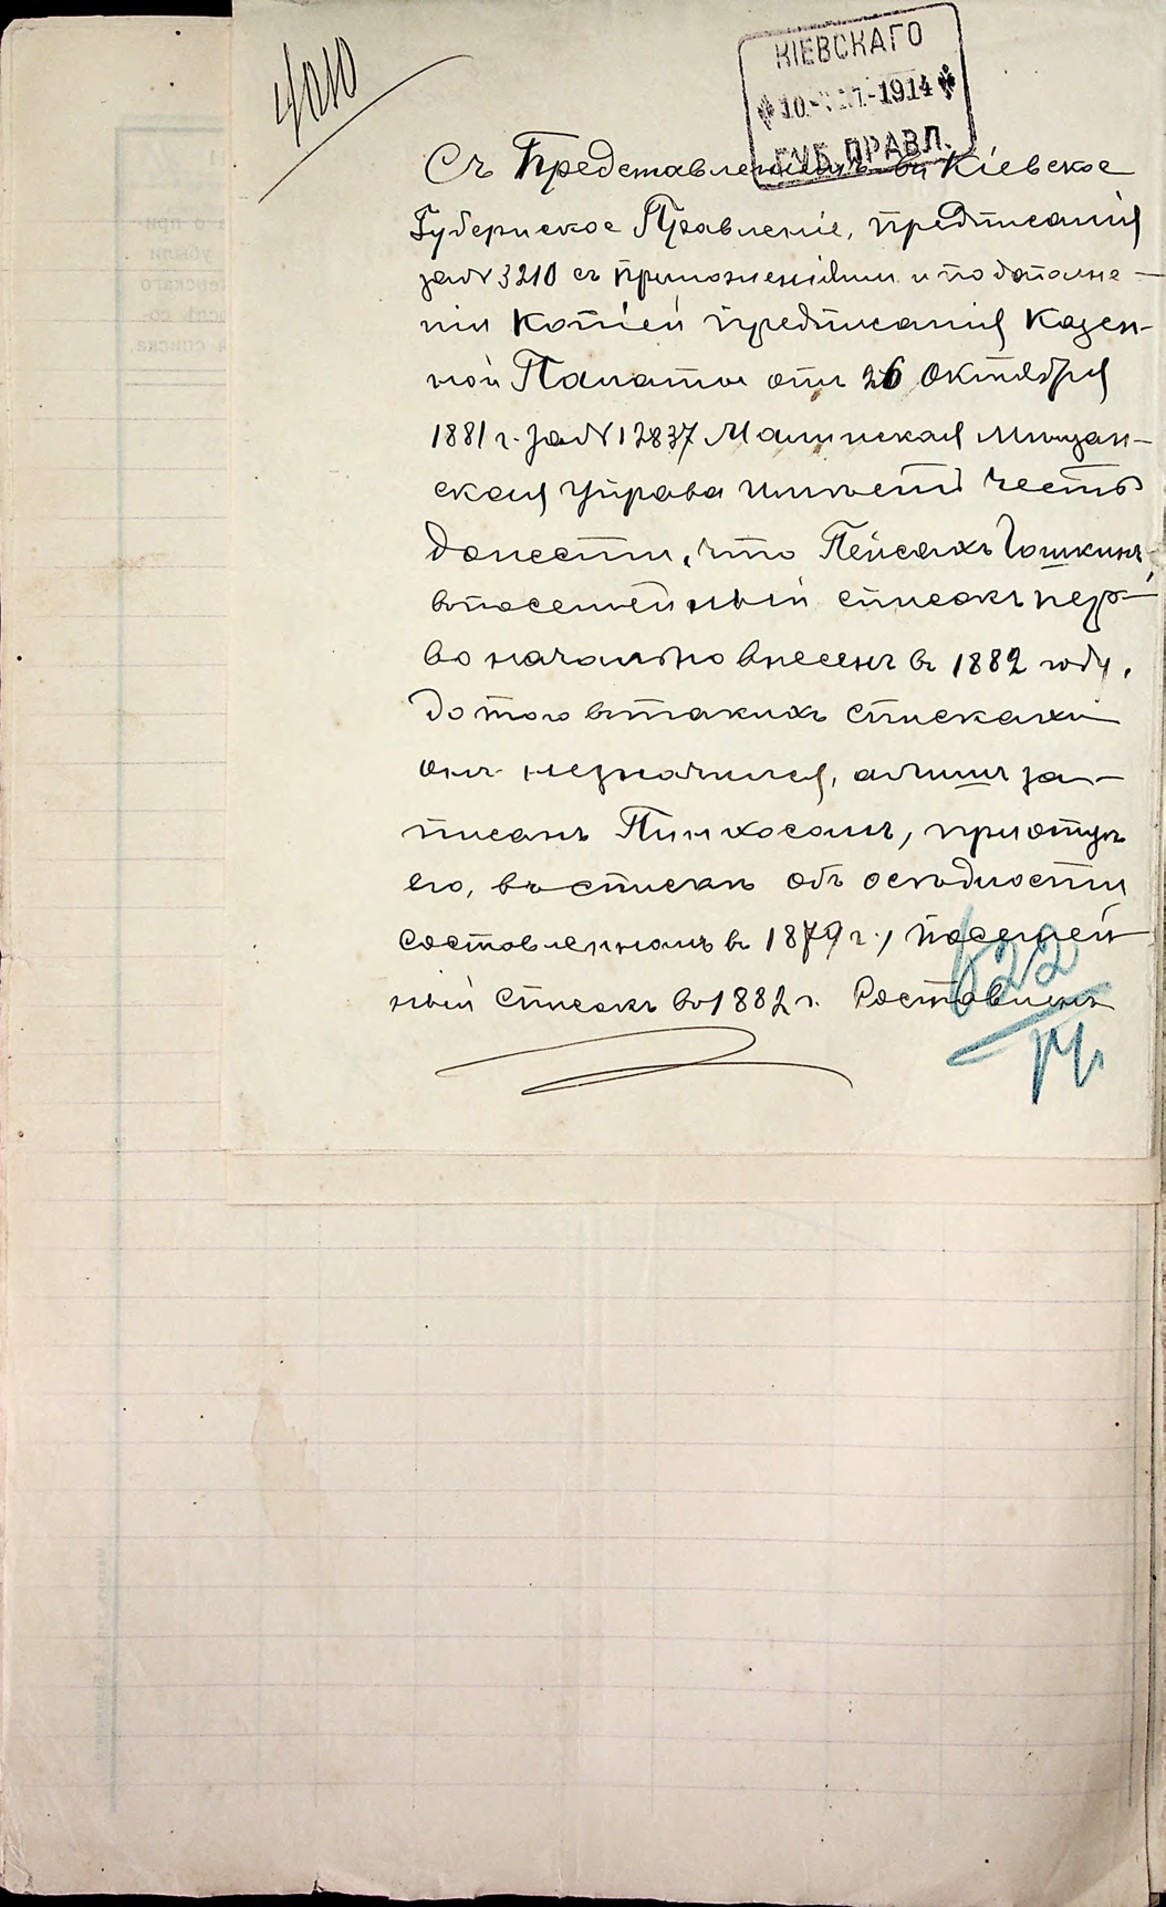 4010
КІЕВСКАГО
10-VII-1914
ГУБ. ПРАВЛ.
Съ Представленіемъ въ Кіевское
Губернское Правленіе, предписанія
за № 3210 съ приложеніями и по дополне-
ніи Копіей предписанія Казен-
ной Палаты отъ 26 Октября
1881 г. за № 12837 Малинская Мѣщан-
ская Управа имѣетъ честь
донести, что Пейсахъ Гошкинъ,
въ посемейный списокъ пер-
воначально внесенъ въ 1882 году,
до того въ такихъ спискахъ
онъ не значился, а лишь за-
писанъ Пинхосомъ, при отцѣ
его, въ спискѣ объ осѣдлости
составленномъ въ 1879 г., посемей-
ный Списокъ въ 1882 г. Составленъ
622
14